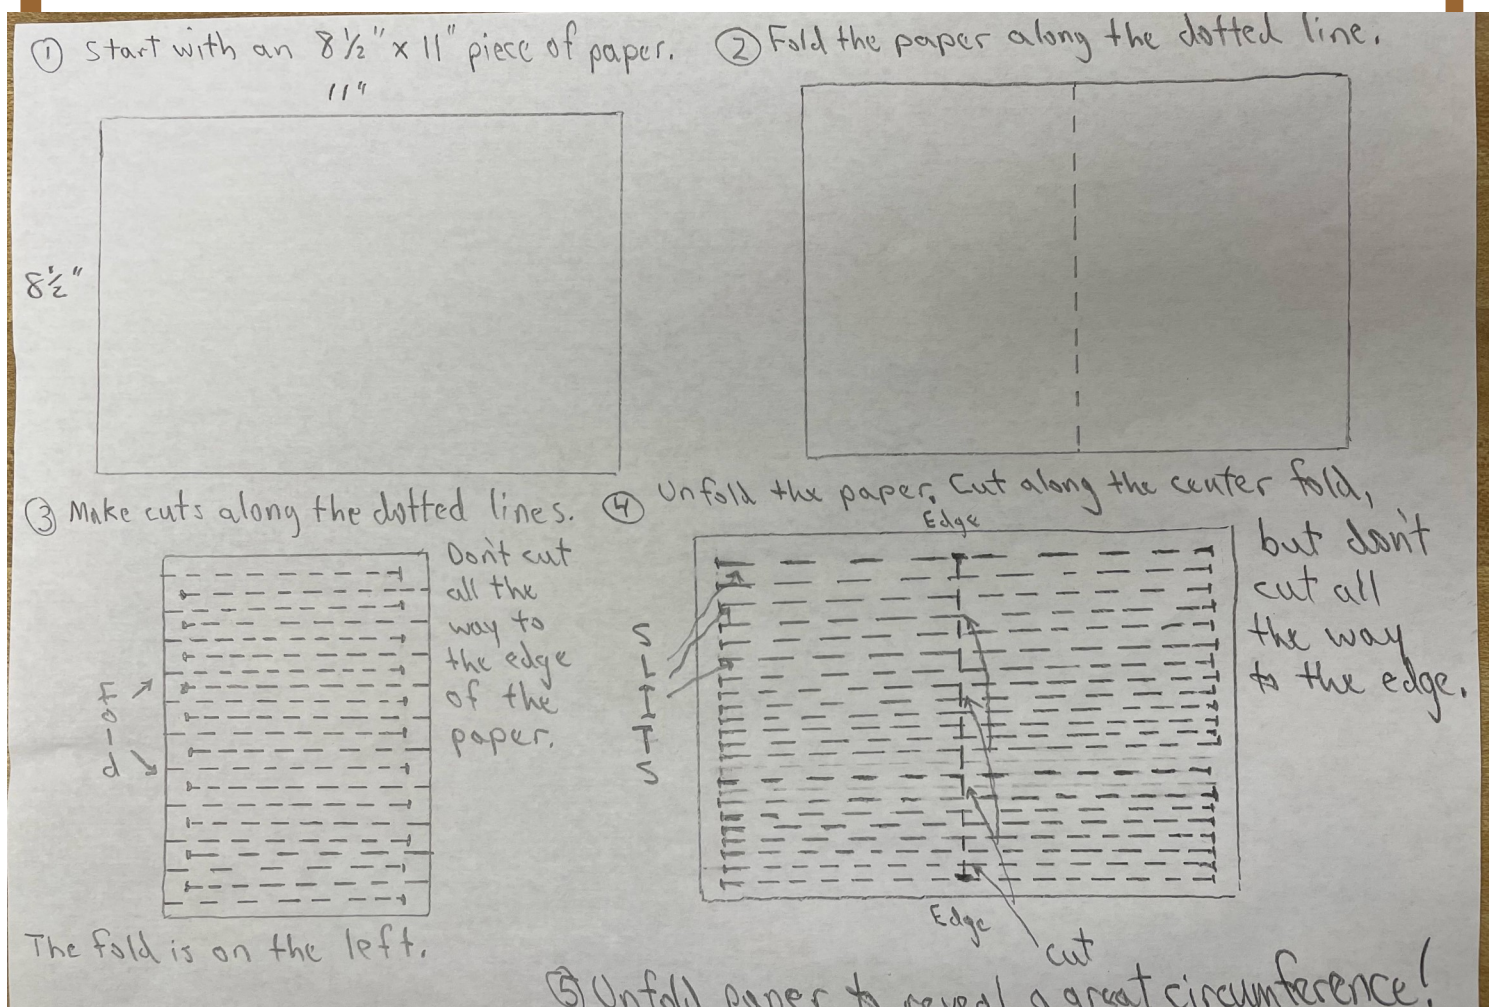 ① Start with an 8 1/2" x 11" piece of paper.
11"
8 1/2"
② Fold the paper along the dotted line.
③ Make cuts along the dotted lines.
Don't cut
all the
way to
the edge
of the
paper.
fold
The fold is on the left.
④ Unfold the paper. Cut along the center fold,
but don't
cut all
the way
to the edge.
Edge
SLITS
Edge
cut
⑤ Unfold paper to reveal a great circumference!